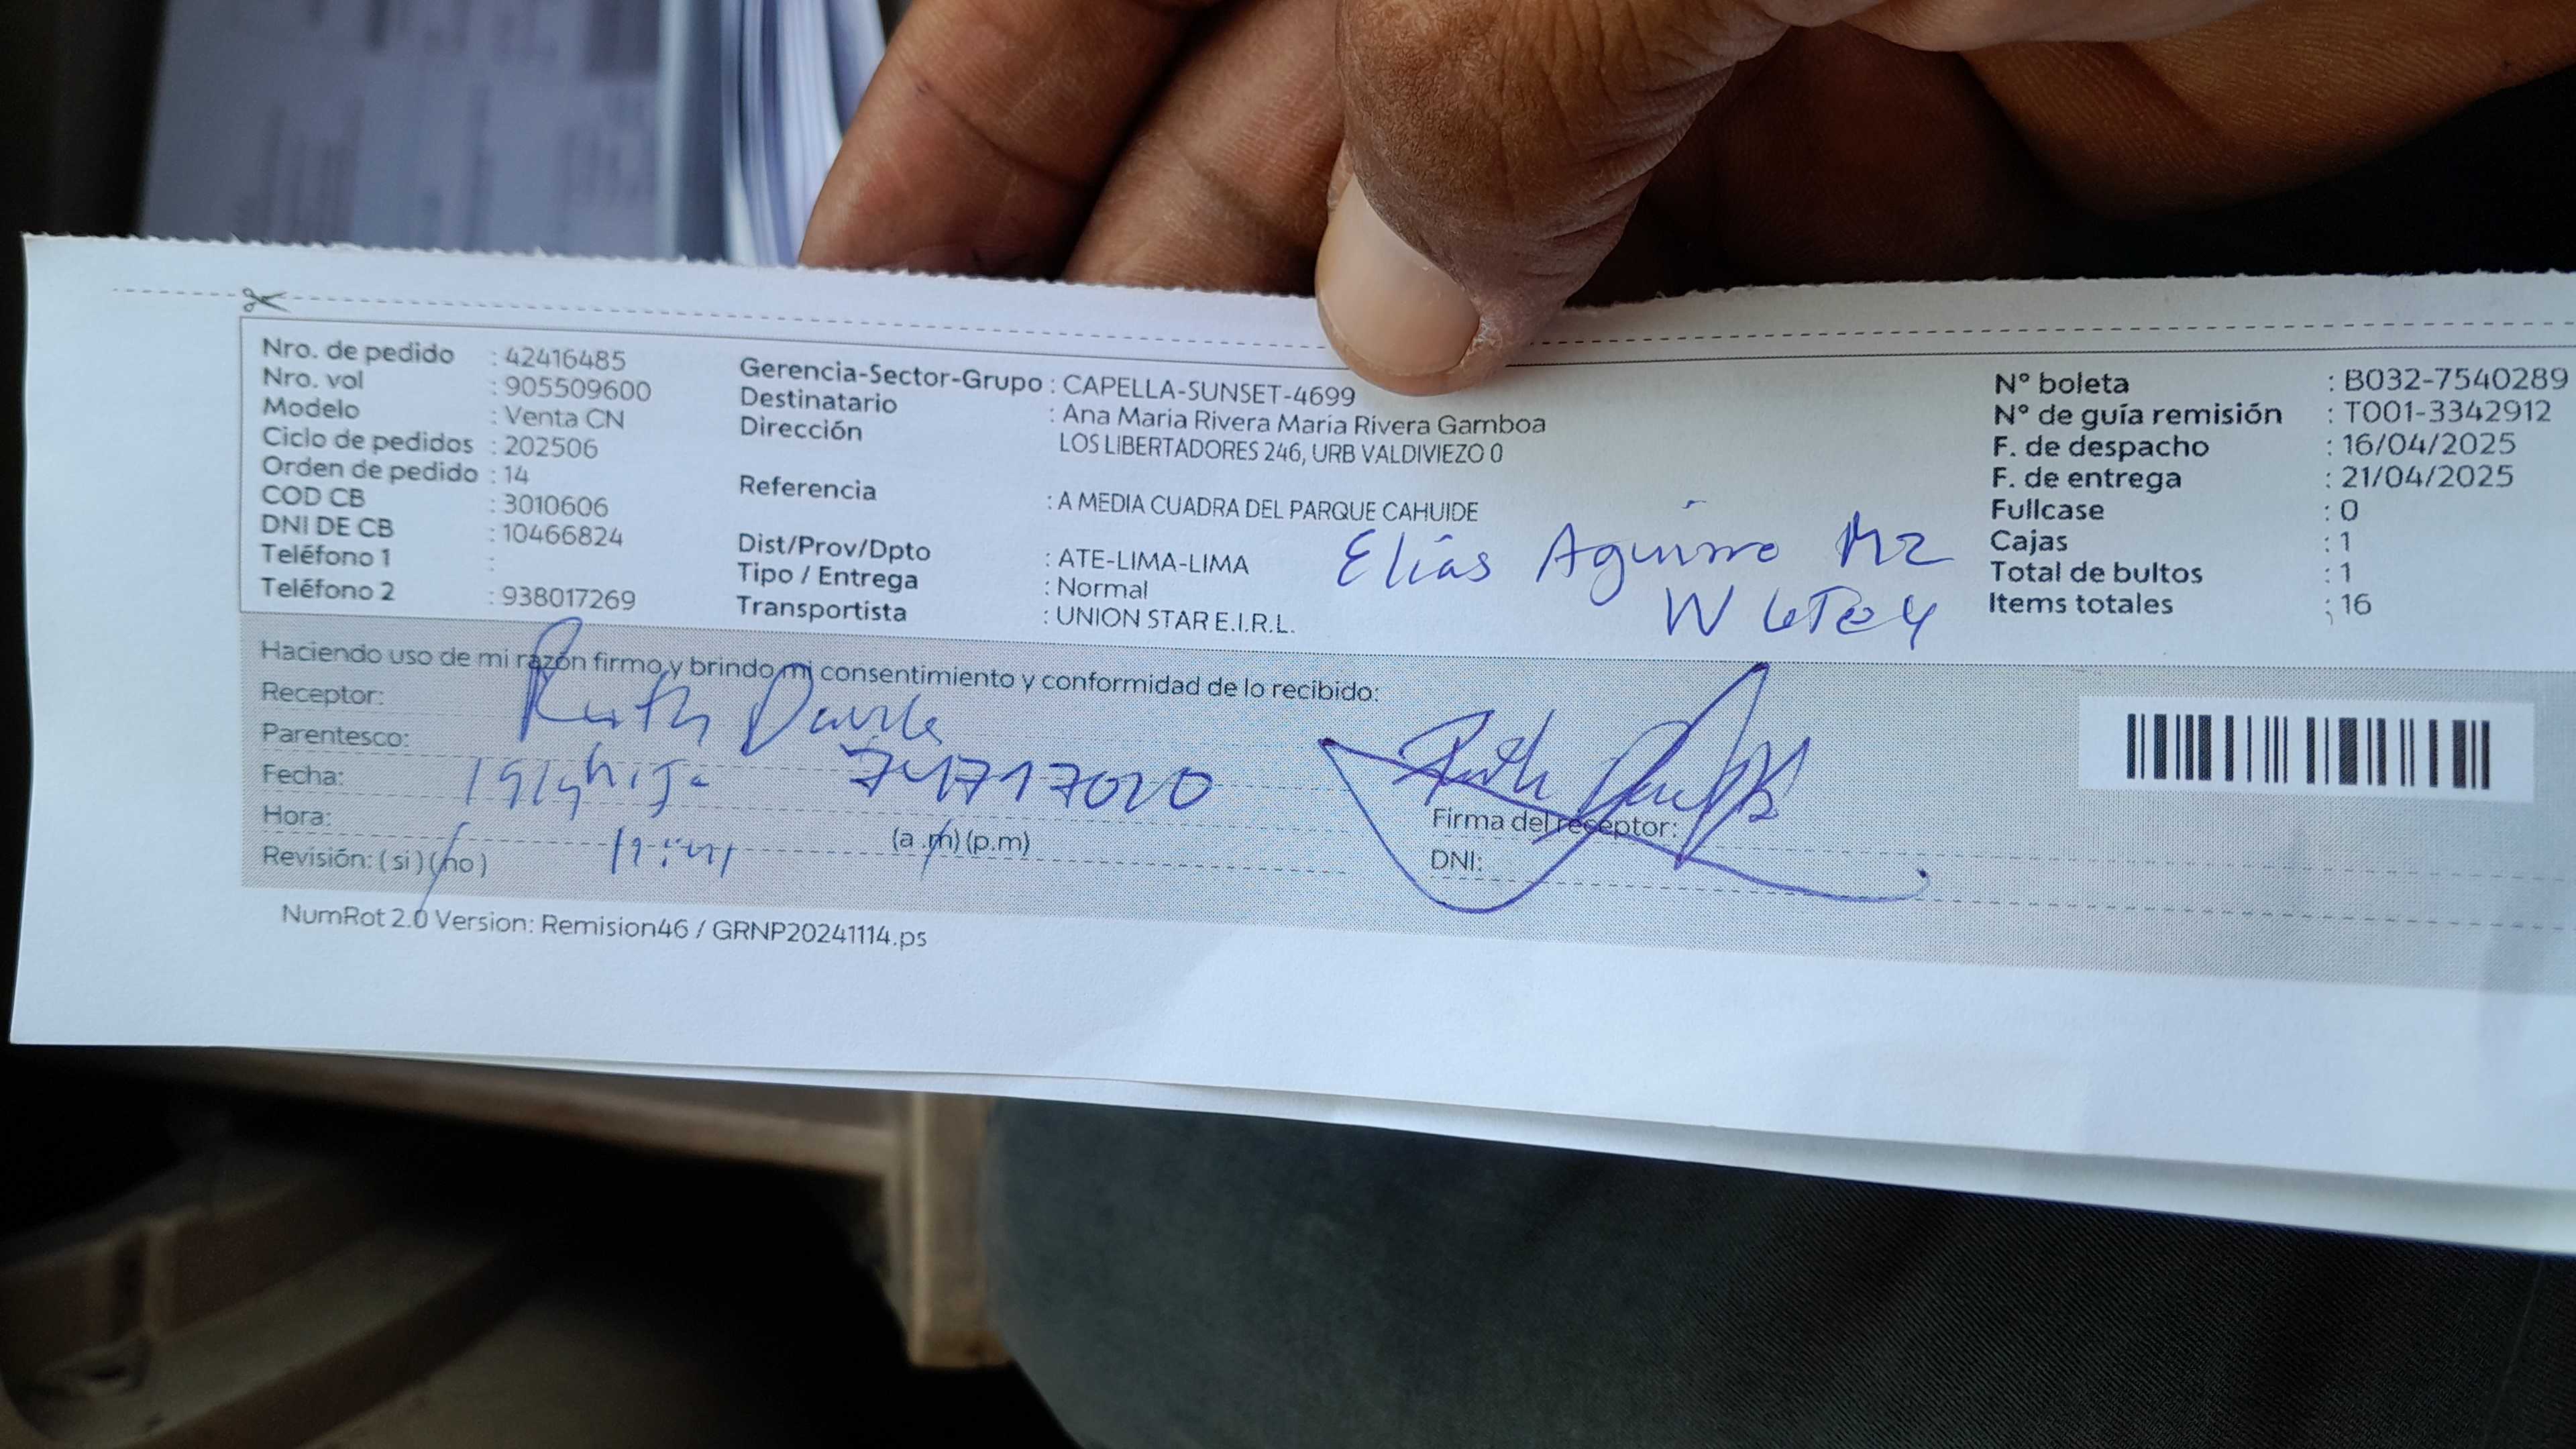 Nro. de pedido : 42416485
Nro. vol : 905509600
Modelo : Venta CN
Ciclo de pedidos : 202506
Orden de pedido : 14
COD CB : 3010606
DNI DE CB : 10466824
Teléfono 1 :
Teléfono 2 : 938017269
Gerencia-Sector-Grupo : CAPELLA-SUNSET-4699
Destinatario : Ana Maria Rivera María Rivera Gamboa
Dirección LOS LIBERTADORES 246, URB VALDIVIEZO 0
Referencia : A MEDIA CUADRA DEL PARQUE CAHUIDE
Dist/Prov/Dpto : ATE-LIMA-LIMA
Tipo / Entrega : Normal
Transportista : UNION STAR E.I.R.L.
Elías Aguirre Mz
N° boleta : B032-7540289
N° de guía remisión : T001-3342912
F. de despacho : 16/04/2025
F. de entrega : 21/04/2025
Fullcase : 0
Cajas : 1
Total de bultos : 1
Items totales : 16
Haciendo uso de mi razón firmo y brindo mi consentimiento y conformidad de lo recibido:
Receptor: Ruth Davila
Parentesco:
Fecha: 74717020
Hora: (a .m) (p.m)
Revisión: ( si ) ( no )
Firma del receptor:
DNI:
NumRot 2.0 Version: Remision46 / GRNP20241114.ps